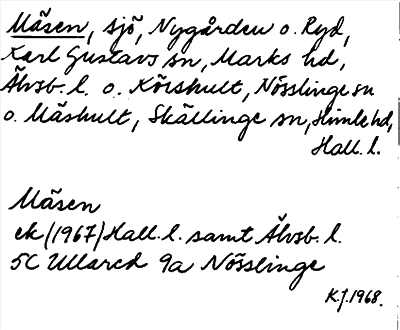 Mäsen, sjö, Nygården o. Ryd,
Karl Gustavs sn, Marks hd,
Älvsb. l. o. Körshult, Nösslinge sn
o. Mäshult, Skällinge sn, Himle hd,
Hall. l.
Mäsen
ek (1967) Hall. l. samt Älvsb. l.
5C Ullared 9a Nösslinge
K.J. 1968.